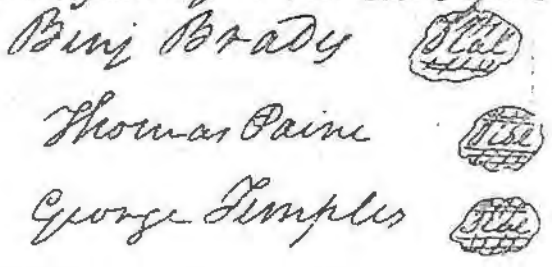 Benj Brady Seal
Thomas Paine Seal
George Temples Seal